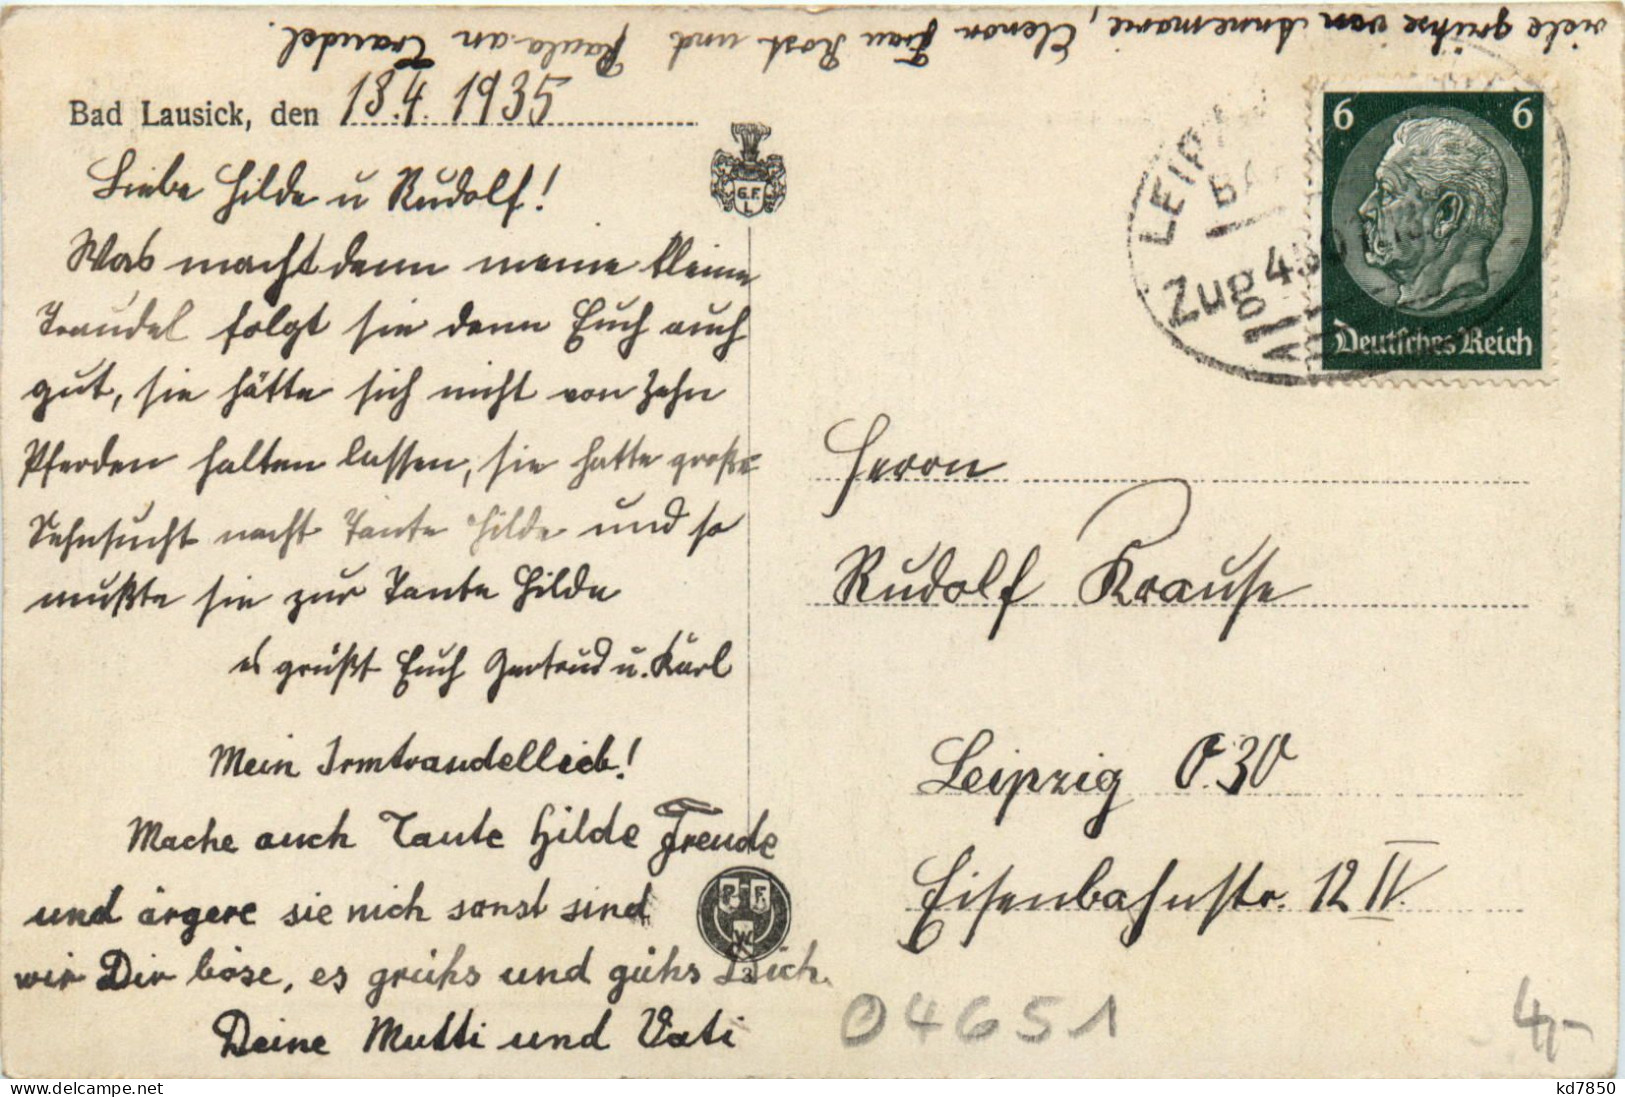 viele grühse von Annemarie, Elenor Frau Rost und Paula an Traudel.
Bad Lausick, den 13.4.1935
Liebe Hilde u Rudolf!
Was macht denn meine kleine
Traudel folgt sie denn Euch auch
gut, sie hätte sich nicht von zehn
Pferden halten lassen, sie hatte große
Sehnsucht nach Tante Hilde und so
mußte sie zur Tante Hilde
es grüßt Euch Gertrud u. Karl
Mein Irmtraudellieb!
Mache auch Tante Hilde Freude
und ärgere sie nich sonst sind
wir Dir böse, es grühs und gühs Dich.
Deine Mutti und Vati
G.F.
L
P F
W
3
LEIPZ
Zug
6 6
Deutsches Reich
Herrn
Rudolf Krause
Leipzig O 30
Eisenbahnstr. 12 II.
04651
4,-
kd7850